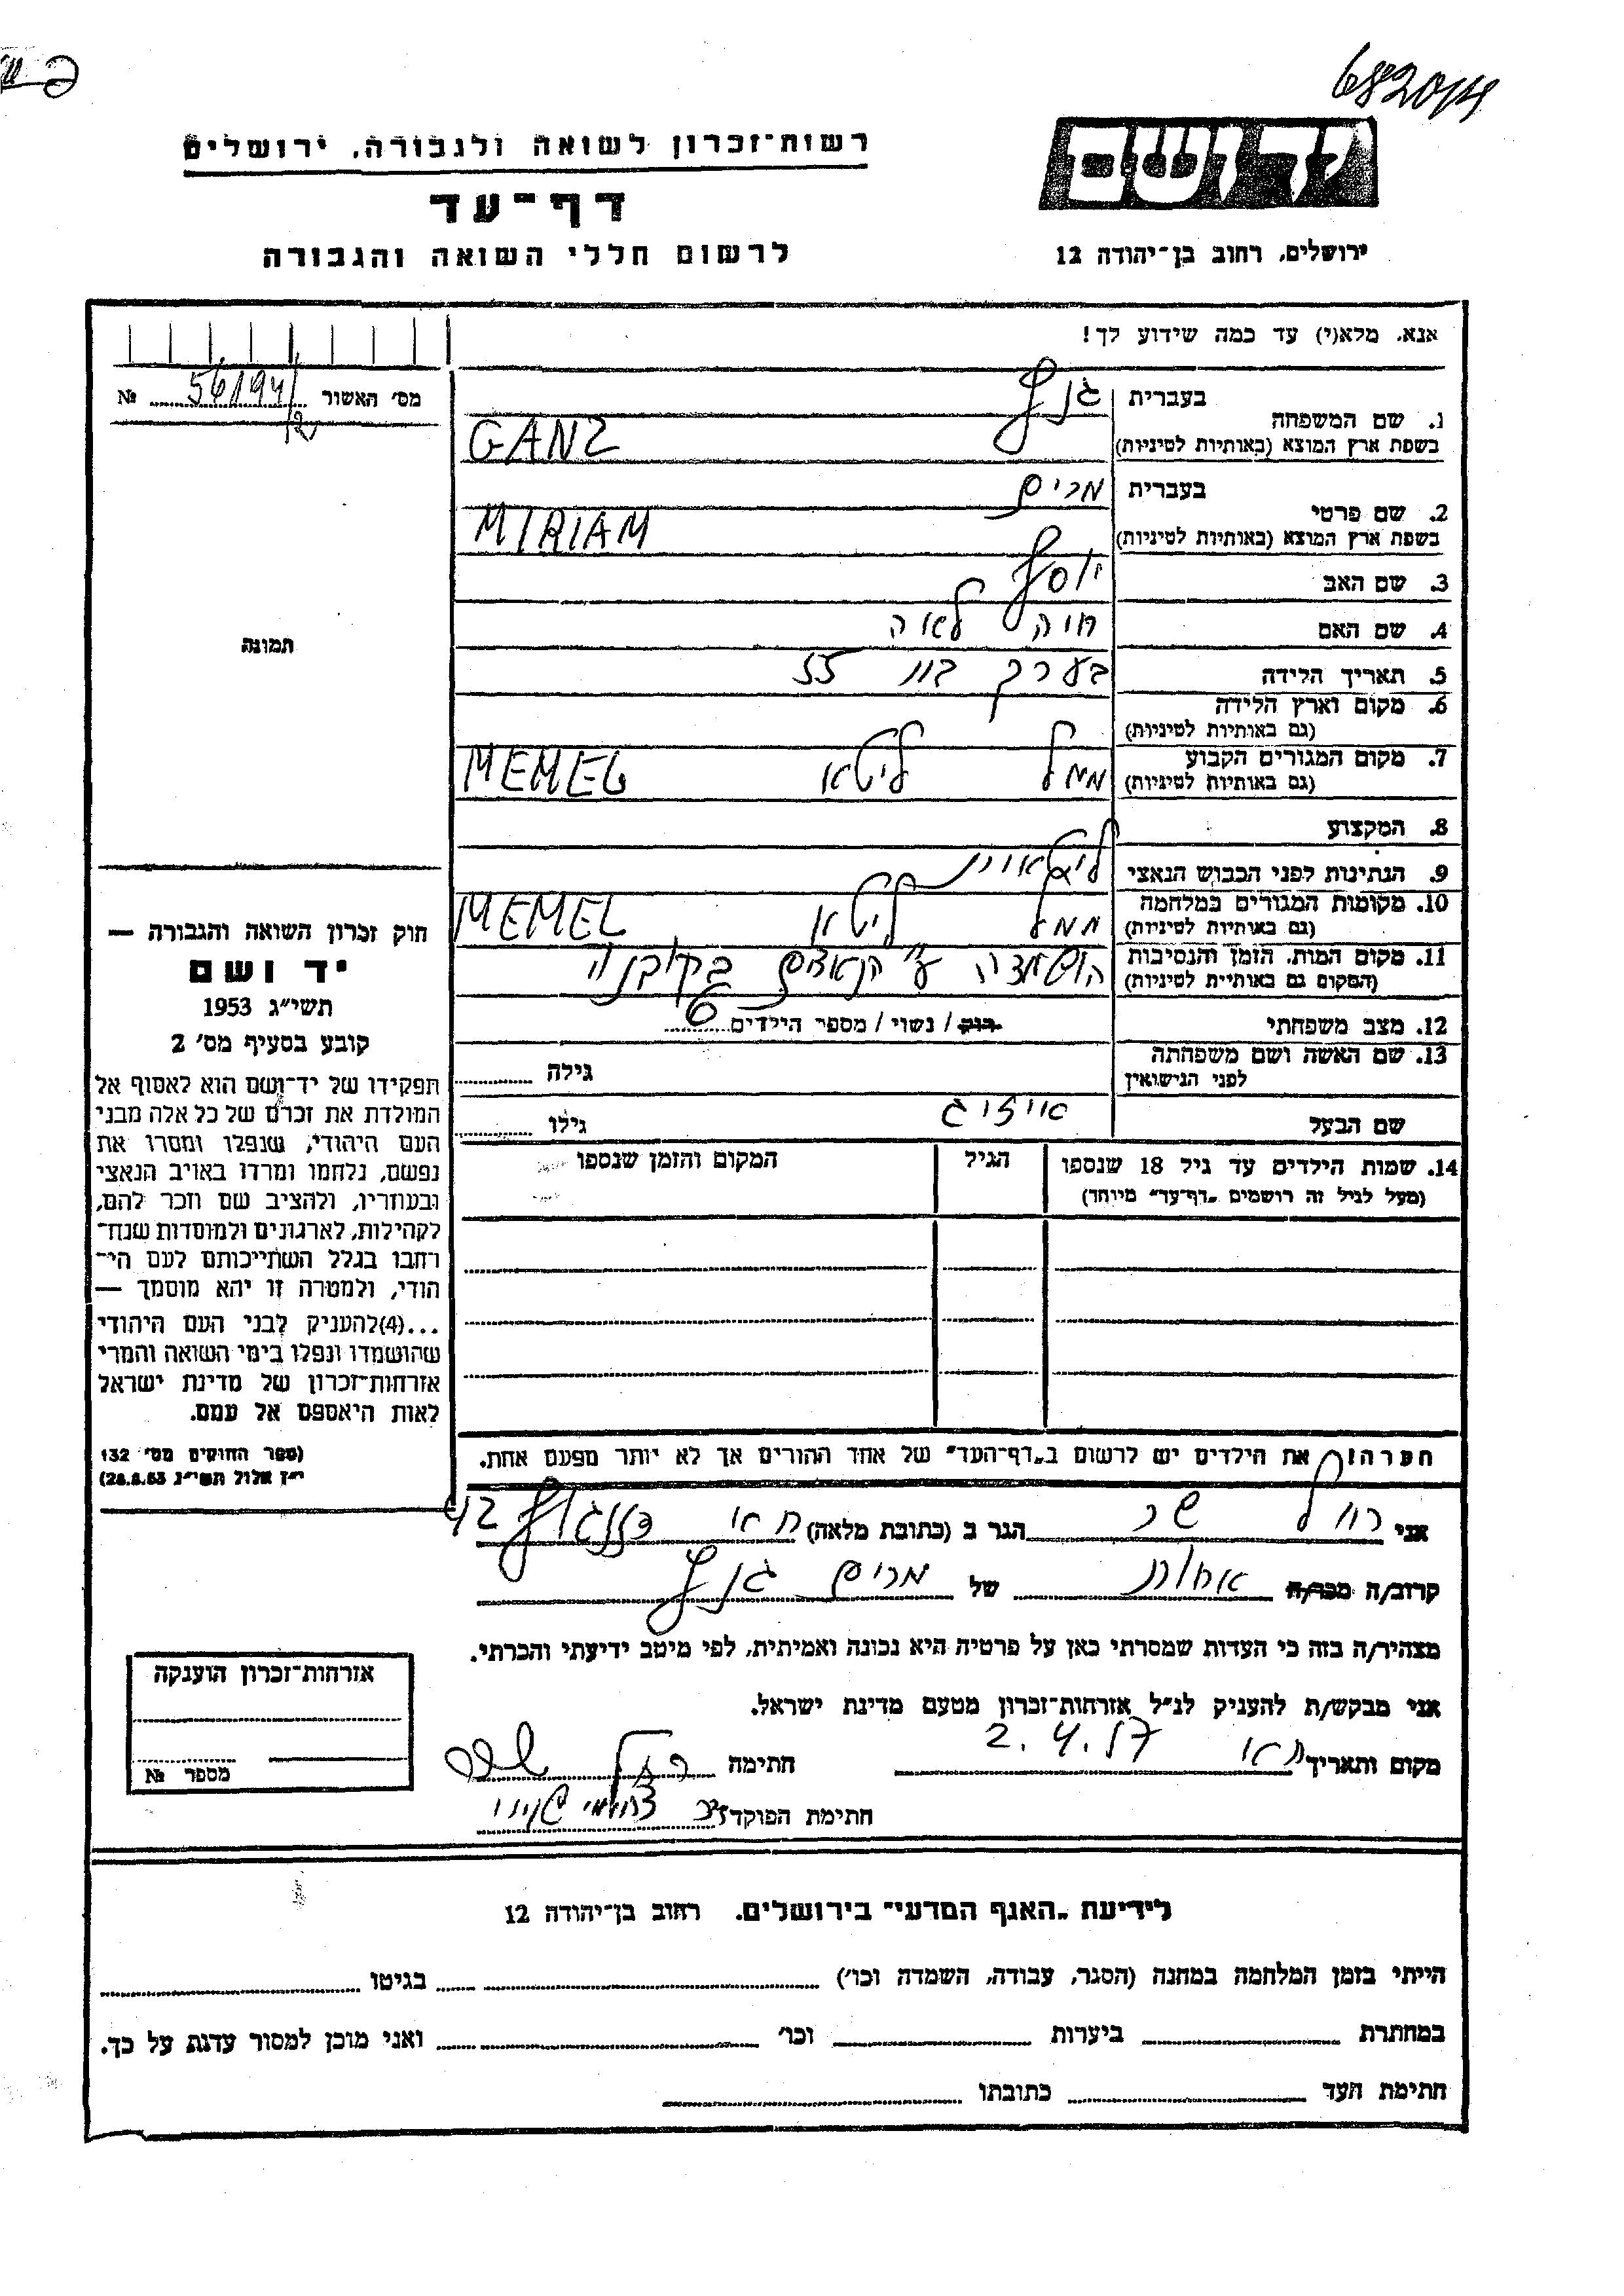 682014
יד ושם
רשות־זכרון לשואה ולגבורה, ירושלים
דף־עד
לרשום חללי השואה והגבורה
ירושלים, רחוב בן־יהודה 12
אנא, מלא(י) עד כמה שידוע לך!
מס' האשור 56194/ №
12
1. שם המשפחה
בעברית גנץ
בשפת ארץ המוצא (באותיות לטיניות) GANZ
2. שם פרטי
בעברית מרים
בשפת ארץ המוצא (באותיות לטיניות) MIRIAM
3. שם האב יוסף
4. שם האם חיה לאה
5. תאריך הלידה בערך בת 55
6. מקום וארץ הלידה
(גם באותיות לטיניות)
7. מקום המגורים הקבוע ממל ליטא MEMEL
(גם באותיות לטיניות)
8. המקצוע
9. הנתינות לפני הכבוש הנאצי ליטאית
10. מקומות המגורים במלחמה ממל ליטא MEMEL
(גם באותיות לטיניות)
11. מקום המות, הזמן והנסיבות הושמדה ע"י הנאצים בקובנה
(המקום גם באותיית לטיניות)
12. מצב משפחתי רוק / נשוי / מספר הילדים 6
13. שם האשה ושם משפחתה
לפני הנישואין
גילה
שם הבעל אייזיג
גילו
14. שמות הילדים עד גיל 18 שנספו
(מעל לגיל זה רושמים „דף־עד" מיוחד)
הגיל
המקום והזמן שנספו
הערה: את הילדים יש לרשום ב„דף־העד" של אחד ההורים אך לא יותר מפעם אחת.
תמונה
חוק זכרון השואה והגבורה —
יד ושם
תשי"ג 1953
קובע בסעיף מס' 2
תפקידו של יד־ושם הוא לאסוף אל
המולדת את זכרם של כל אלה מבני
העם היהודי, שנפלו ומסרו את
נפשם, נלחמו ומרדו באויב הנאצי
ובעוזריו, ולהציב שם וזכר להם,
לקהילות, לארגונים ולמוסדות שנח־
רחבו בגלל השתייכותם לעם הי־
הודי, ולמטרה זו יהא מוסמך —
...(4)להעניק לבני העם היהודי
שהושמדו ונפלו בימי השואה והמרי
אזרחות־זכרון של מדינת ישראל
לאות היאספם אל עמם.
(ספר החוקים מס' 132
י"ז אלול תשי"ג 28.8.53)
אני רחל הגר ב (כתובת מלאה) 42
קרוב/ה מכר/ה אחות של מרים גנץ
מצהיר/ה בזה כי העדות שמסרתי כאן על פרטיה היא נכונה ואמיתית, לפי מיטב ידיעתי והכרתי.
אני מבקש/ת להעניק לנ"ל אזרחות־זכרון מטעם מדינת ישראל.
מקום ותאריך ת"א 2.4.57 חתימה רחל
חתימת הפוקד
אזרחות־זכרון הוענקה
מספר №
לידיעת „האגף המדעי" בירושלים, רחוב בן־יהודה 12
הייתי בזמן המלחמה במחנה (הסגר, עבודה, השמדה וכו') בגיטו
במחתרת ביערות וכו' ואני מוכן למסור עדות על כך.
חתימת העד כתובתו